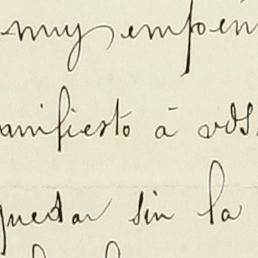 muy empeñ
manifiesto á vds.
quedar sin la